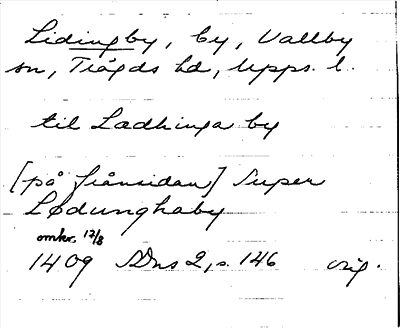 Lidingby, by, Vallby
sn, Trögds hd, Upps. l.
til Ladhinga by
[på frånsidan] Super
Lødunghaby
omkr. 17/8
1409 SDns 2, s. 146 orig.